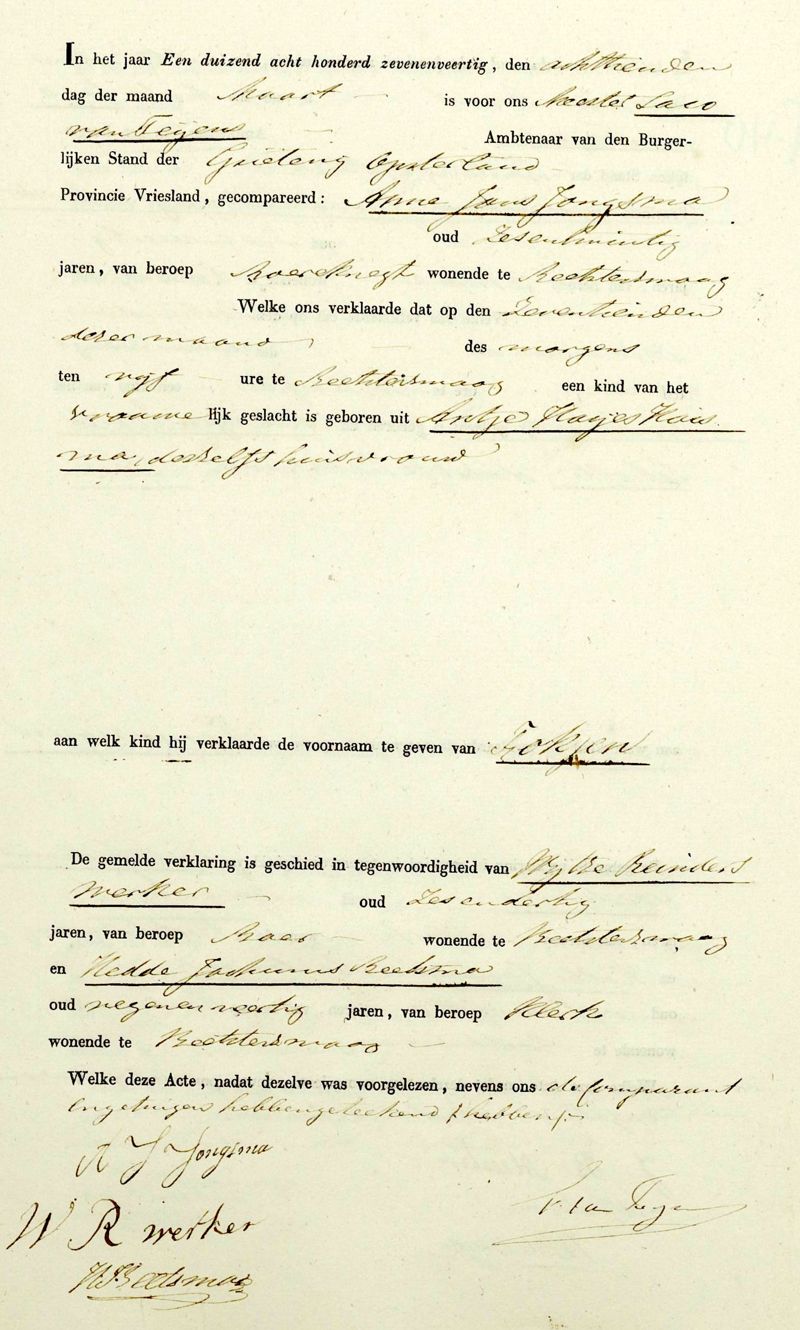 In het jaar Een duizend acht honderd zevenenveertig, den achttienden
dag der maand Maart is voor ons Meester Saco
van Teyens Ambtenaar van den Burger-
lijken Stand der Grieteny Opsterland
Provincie Vriesland, gecompareerd: Anne Jans Jongsma
oud Zesentwintig
jaren, van beroep Boereknegt wonende te Beetstersmaag
Welke ons verklaarde dat op den Zeventienden
dezer maand des morgens
ten vyf ure te Beetstersmaag een kind van het
vrouwelijk geslacht is geboren uit Antje Hayes Huis
ma, deszelfs huisvrouw
aan welk kind hij verklaarde de voornaam te geven van Fokjen
De gemelde verklaring is geschied in tegenwoordigheid van Wytze Reinders
Werker oud Zesendertig
jaren, van beroep Boer wonende te Beetstersmaag
en Hedde Jochums Beetsma
oud negenenveertig jaren, van beroep Klerk
wonende te Beetstersmaag
Welke deze Acte, nadat dezelve was voorgelezen, nevens ons de Comparant
en getuigen hebben geteekend
A J Jongsma
W R werker
van Teyens
HJBeetsma